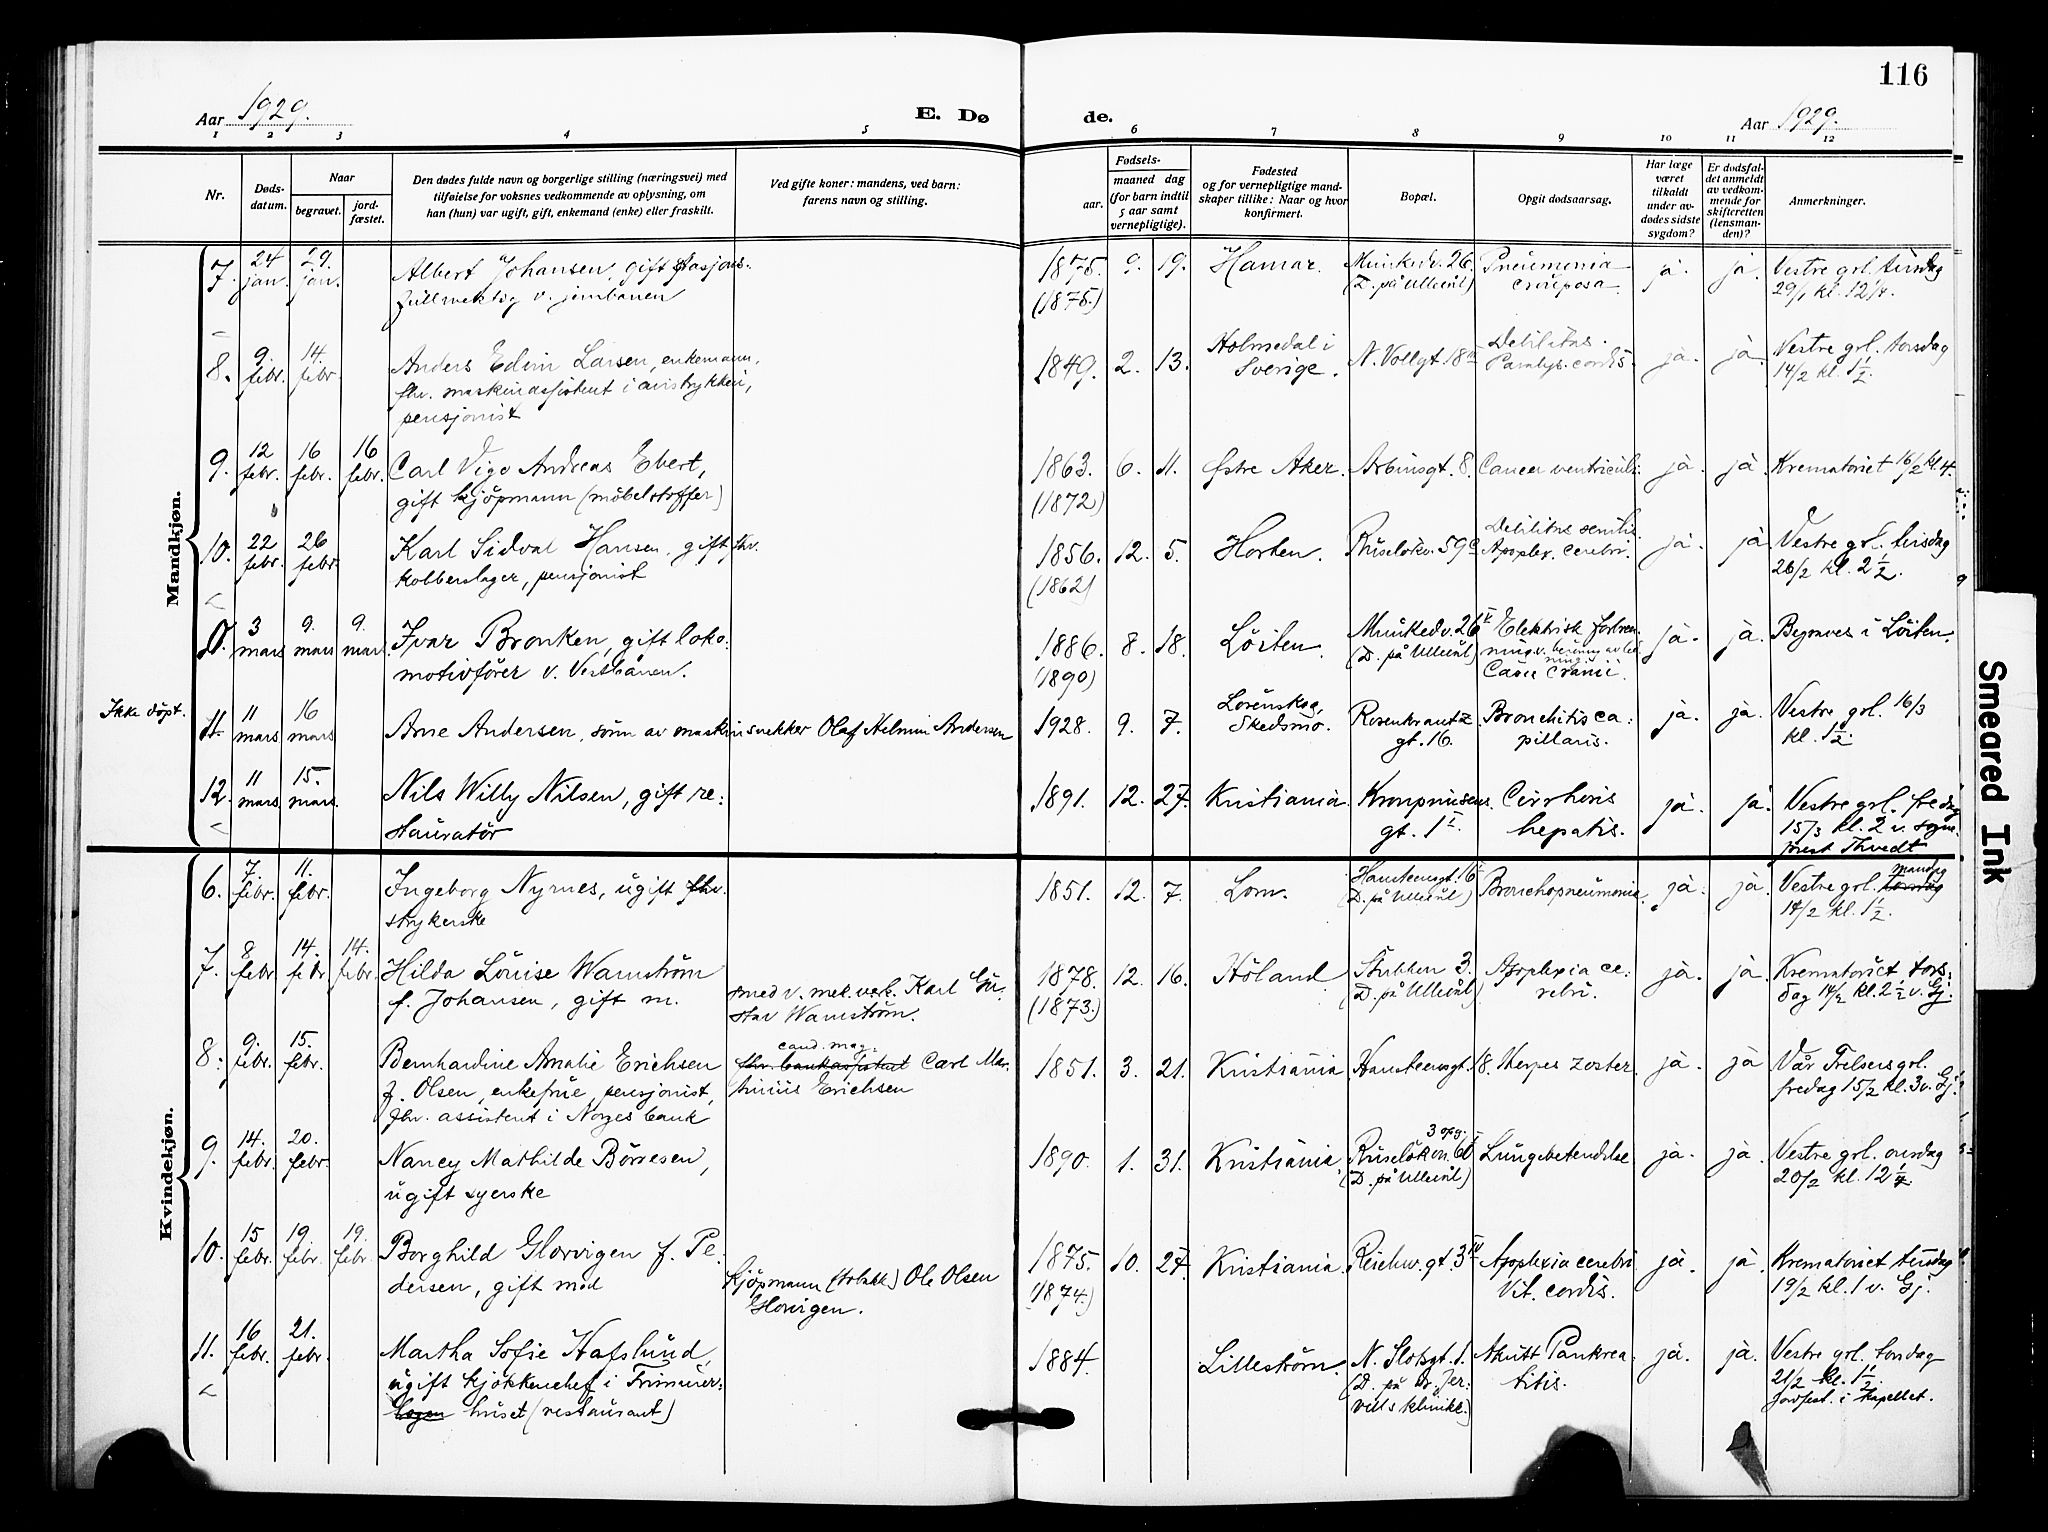 116
Aar 1929.
E. Dø
de.
Aar 1929.
1 2 3 4 5 6 7 8 9 10 11 12
Nr.
Døds-
datum.
Naar
begravet.
jord-
fæstet.
Den dødes fulde navn og borgerlige stilling (næringsvei) med
tilføielse for voksnes vedkommende av oplysning, om
han (hun) var ugift, gift, enkemand (enke) eller fraskilt.
Ved gifte koner: mandens, ved barn:
farens navn og stilling.
Fødsels-
aar.
maaned dag
(for barn indtil
5 aar samt
vernepligtige).
Fødested
og for vernepligtige mand-
skaper tillike: Naar og hvor
konfirmert.
Bopæl.
Opgit dødsaarsag.
Har læge
været
tilkaldt
under av-
dødes sidste
sygdom?
Er dødsfal-
det anmeldt
av vedkom-
mende for
skifteretten
(lensman-
den)?
Anmerkninger.
Mandkjøn.
7. 24 jan. 29. jan. Albert Johansen, gift stasjons-
fullmektig v. jernbanen
1875. 9. 19. Hamar. Munkedv. 26. Pneumonia ja. ja. Vestre grl. tirsdag
(1875) (D. på Ullevål) crouposa. 29/1 kl. 12 1/4.
8. 9. febr. 14. febr. Anders Edvin Larsen, enkemann,
fhv. maskinassistent i avistrykkeri,
pensjonist
1849. 2. 13. Holmedal i N. Vollgt. 18 Debilitas. ja. ja. Vestre grl. torsdag
Sverige. Paralys. cordis. 14/2 kl. 1 1/2.
9. 12 febr. 16 febr. 16 febr. Carl Vigo Andreas Ebert,
gift kjöpmann (möbelstoffer)
1863. 6. 11. Østre Aker. Arbinsgt. 8. Cancer ventriculi. ja. ja. Krematoriet 16/2 kl 4.
(1872)
10. 22 febr. 26 febr. Karl Sidval Hansen, gift fhv.
kobberslager, pensjonist
1856. 12. 5. Horten. Ruselökv. 59 Debilitas senilis. ja. ja Vestre grl. tirsdag
(1862) Apoplex. cerebri. 26/2 kl. 2 1/2.
3 mars 9. mars 9. mars Ivar Bronken, gift loko-
motivförer v. Vestbanen.
1886. 8. 18. Löiten. Munkedv. 26 V Elektrisk forbren- ja. ja. Begraves i Löiten.
(1890) (D. på Ullevål) ning v. beröring av led-
ning.
Caries cranii.
Ikke döpt. 11 11 mars 16 mars Arne Andersen, sönn av maskinsnekker Olaf Helmin Andersen
1928. 9. 7. Lörenskog, Rosenkrantz Bronchitis ca- ja. ja. Vestre grl. 16/3
Skedsmo. gt. 16. pillaris. kl. 1 1/2.
12. 11 mars 15. mars. Nils Willy Nilsen, gift re-
stauratör
1891. 12. 27. Kristiania. Kronprinsens Cirrhosis ja. ja. Vestre grl. fredag
gt. 1 I. hepatis. 15/3 kl. 2 v. sogne-
prest Thvedt
Kvindekjøn.
6. 7. febr. 11. febr. Ingeborg Nyrnes, ugift fhv.
strykerske
1851. 12. 7. Lom. Hansteensgt. 16 Bronchopneumonia. ja. ja. Vestre grl. torsdag mandag
(D. på Ullevål) 14/2 kl. 1 1/2.
7. 8 febr 14. febr 14. febr. Hilda Louise Wamström
f. Johansen, gift m. smed v. mek. verk. Karl Gu-
stav Wamström.
1878. 12. 16. Höland Stubben 3. Apoplexia ce- ja. ja. Krematoriet tors-
(1873.) (D. på Ullevål) rebri. dag 14/2 kl. 2 1/2 v. Gj.
8. 9. febr. 15. febr. Bernhardine Amalie Erichsen
cand. mag.
fhv. bankassistent Carl Mar-
f. Olsen, enkefrue, pensjonist, tinius Erichsen
fhv. assistent i Norges bank
1851. 3. 21. Kristiania Hansteensgt. 18. Herpes zoster. ja. ja Vår Frelsers grl.
fredag 15/2 kl. 3 v. Gj.
9. 14. febr. 20. febr. Nancy Mathilde Börresen,
ugift syerske
1890. 1. 31. Kristiania 3 opg. Ruselökv. 60 Lungebetendelse ja. ja. Vestre grl. onsdag
(D. på Ullevål) 20/2 kl. 12 1/4.
10. 15 febr. 19. febr 19. febr. Borghild Glorvigen f. Pe-
dersen, gift med kjöpmann (tobakk) Ole Olsen
Glorvigen.
1875. 10. 27. Kristiania. Reichw. gt. 3 Apoplexia cerebri ja. ja. Krematoriet tirsdag
(1874.) Vit. cordis. 19/2 kl. 1 v. Gj.
11. 16 febr. 21. febr. Martha Sofie Hafslund,
ugift kjökkenchef i Frimurer-
logen huset (restaurant)
1884. Lilleström. N. Slotsgt. 1. Akutt Pankrea- ja. ja. Vestre grl. torsdag
(D. på dr. Jer- titis. 21/2 kl. 1 1/2.
vells klinikk.) Jordfest. i kapellet.
Smeared Ink